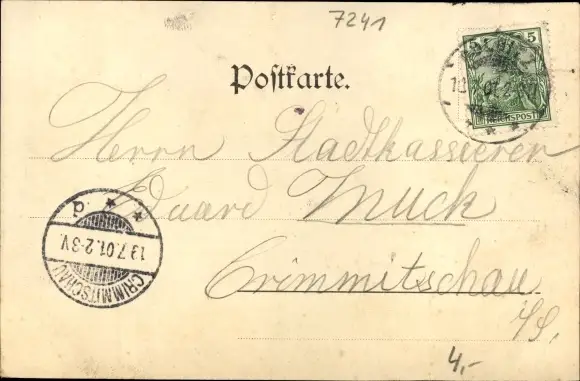 7241
5
REICHSPOST
Postkarte.
Herrn Stadtkassierer
Eduard Muck
Crimmitschau
i/S.
p. * *
13.7.01.2-3V.
CRIMMITSCHAU
4,-